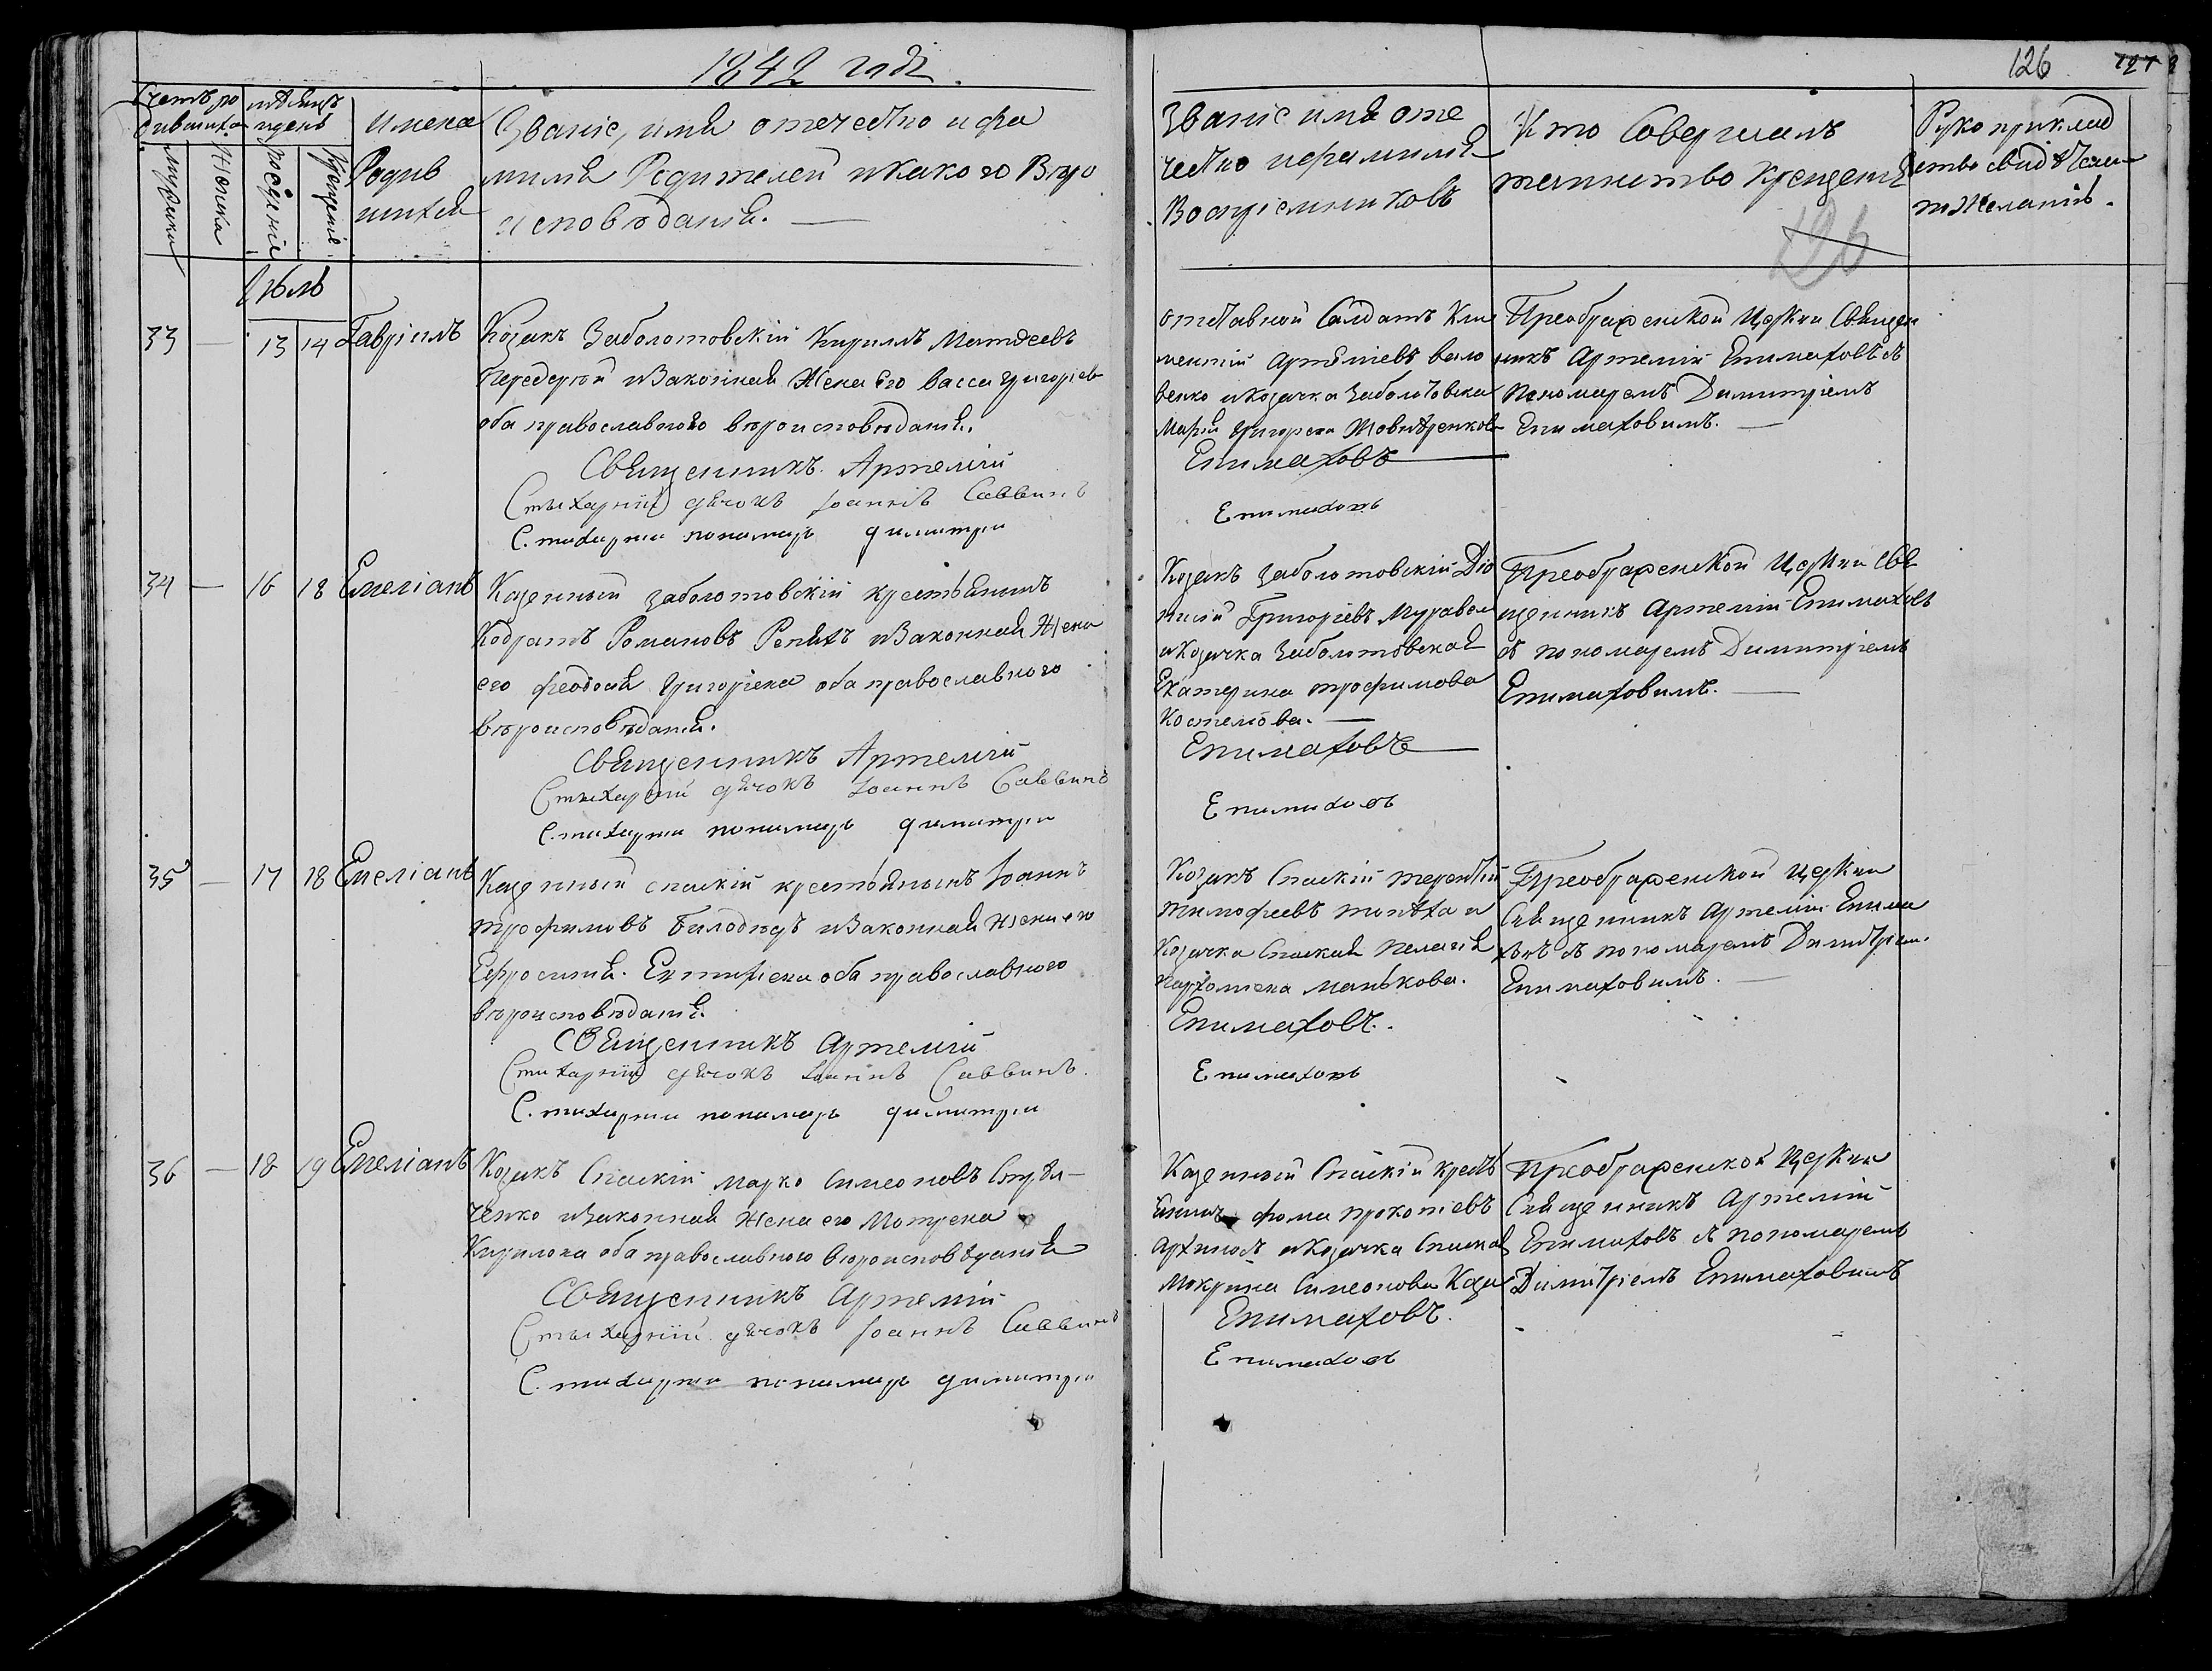 1842 года.
126
Счетъ ро дившихся
мѣсяцъ и день
Имена Родив шихся
Званіе, имя отечество и фа
милія Родителей и какого Вѣро
исповѣданія.
мужска
женска
рожденіе
крещеніе
Званіе имя оте
чество и фамилія
Воспріемниковъ
Кто Совершалъ
таинство крещенія
Рукоприклад
ство свидѣтеле
по желанію.
126
Іюль
33 — 13 14 Гавріилъ
Козакъ Заболотовскій Кириллъ Матфеевъ
и Законная Жена Его Васса Григоріев
оба православного вѣроисповѣданія.
Священникъ Артемій
Стихарній дячокъ Іоаннъ Саввинъ
Стихарни пономарь димитри
отставной Салдатъ Кли
ментій Артеміевъ
венко и козачка Заболотовска
Марія Григорева
Епимаховъ
Епимаховъ
Преображенской Церкви Священ
никъ Артемій Епимаховъ съ
Пономаремъ Димитріемъ
Епимаховимъ.
34 — 16 18 Емеліанъ
Казенный заболотовскій крестьянинъ
Кодратъ Романовъ Репяхъ и Законная Жена
его феодосія Григорьева оба православного
вѣроисповѣданія.
Священникъ Артемій
Стихарній дячокъ Іоаннъ Саввинъ
Стихарни пономарь димитри
Козакъ Заболотовскій Діо
нисій Григоріевъ Муравел
и Козачка Заболотовская
Екатерина трофимова
Костенкова.
Епимаховъ
Епимаховъ
Преображенской Церкви Свя
щенникъ Артемій Епимаховъ
съ пономаремъ Димитріемъ
Епимаховимъ.
35 — 17 18 Емеліанъ
Казенный спаскій крестьянинъ Іоаннъ
трофимовъ Билодѣдъ и Законная Жена его
Ефросинія. Евтифіева оба православного
вѣроисповѣданія.
Священникъ Артемій
Стихарній дячокъ Іоаннъ Саввинъ.
Стихарни пономарь димитри
Козакъ Спаскій терентій
тимофеевъ и
Козачка Спаская Пелагія
Пархомева Манькова.
Епимаховъ.
Епимаховъ
Преображенской церкви
Священникъ Артемій Епима
ховъ съ пономаремъ Димитріем.
Епимаховимъ.
36 — 18 19 Емеліанъ
Козакъ Спаскій Марко Симеоновъ
ченко и Законная Жена его Мотрена
Кирилова оба православного вѣроисповѣданія
Священникъ Артемій
Стихарній дячокъ Іоаннъ Саввинъ
Стихарни пономарь димитри
Казенный Спаскій крестъ
янинъ фома прокопіевъ
и Козачка Спаская
Мокрина Симеонова
Епимаховъ.
Епимаховъ
Преображенской Церкви
Священникъ Артемій
Епимаховъ съ пономаремъ
Димитріемъ Епимаховимъ